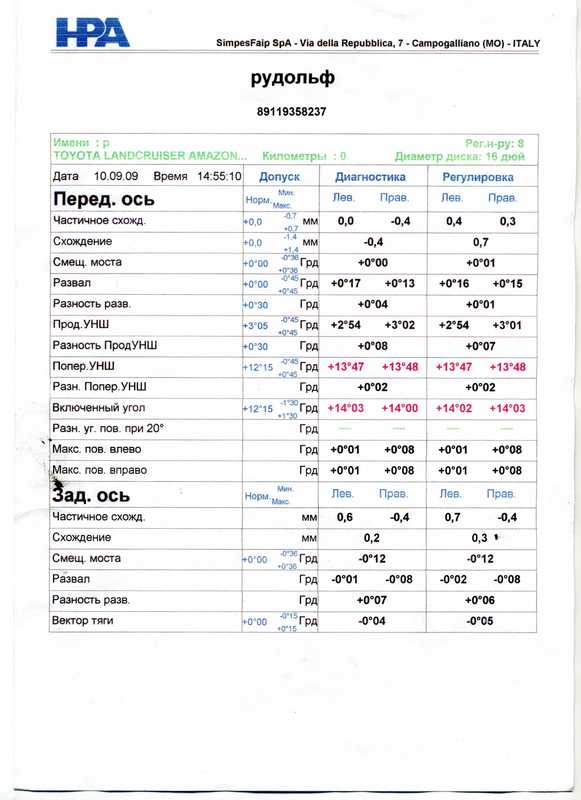 HPA
SimpesFaip SpA - Via della Repubblica, 7 - Campogalliano (MO) - ITALY
рудольф
89119358237
Имени : р Рег.н-ру: 8
TOYOTA LANDCRUISER AMAZON... Километры : 0 Диаметр диска: 16 дюй
Дата 10.09.09 Время 14:55:10 Допуск Диагностика Регулировка
Перед. ось Норм. Мин. Макс. Лев. Прав. Лев. Прав.
Частичное схожд. +0,0 -0,7 +0,7 мм 0,0 -0,4 0,4 0,3
Схождение +0,0 -1,4 +1,4 мм -0,4 0,7
Смещ. моста +0°00 -0°36 +0°36 Грд +0°00 +0°01
Развал +0°00 -0°45 +0°45 Грд +0°17 +0°13 +0°16 +0°15
Разность разв. +0°30 Грд +0°04 +0°01
Прод.УНШ +3°05 -0°45 +0°45 Грд +2°54 +3°02 +2°54 +3°01
Разность ПродУНШ +0°30 Грд +0°08 +0°07
Попер.УНШ +12°15 -0°45 +0°45 Грд +13°47 +13°48 +13°47 +13°48
Разн. Попер.УНШ Грд +0°02 +0°02
Включенный угол +12°15 -1°30 +1°30 Грд +14°03 +14°00 +14°02 +14°03
Разн. уг. пов. при 20° Грд ---- ---- ---- ----
Макс. пов. влево Грд +0°01 +0°08 +0°01 +0°08
Макс. пов. вправо Грд +0°01 +0°08 +0°01 +0°08
Зад. ось Норм. Мин. Макс. Лев. Прав. Лев. Прав.
Частичное схожд. мм 0,6 -0,4 0,7 -0,4
Схождение мм 0,2 0,3
Смещ. моста +0°00 -0°36 +0°36 Грд -0°12 -0°12
Развал Грд -0°01 -0°08 -0°02 -0°08
Разность разв. Грд +0°07 +0°06
Вектор тяги +0°00 -0°15 +0°15 Грд -0°04 -0°05